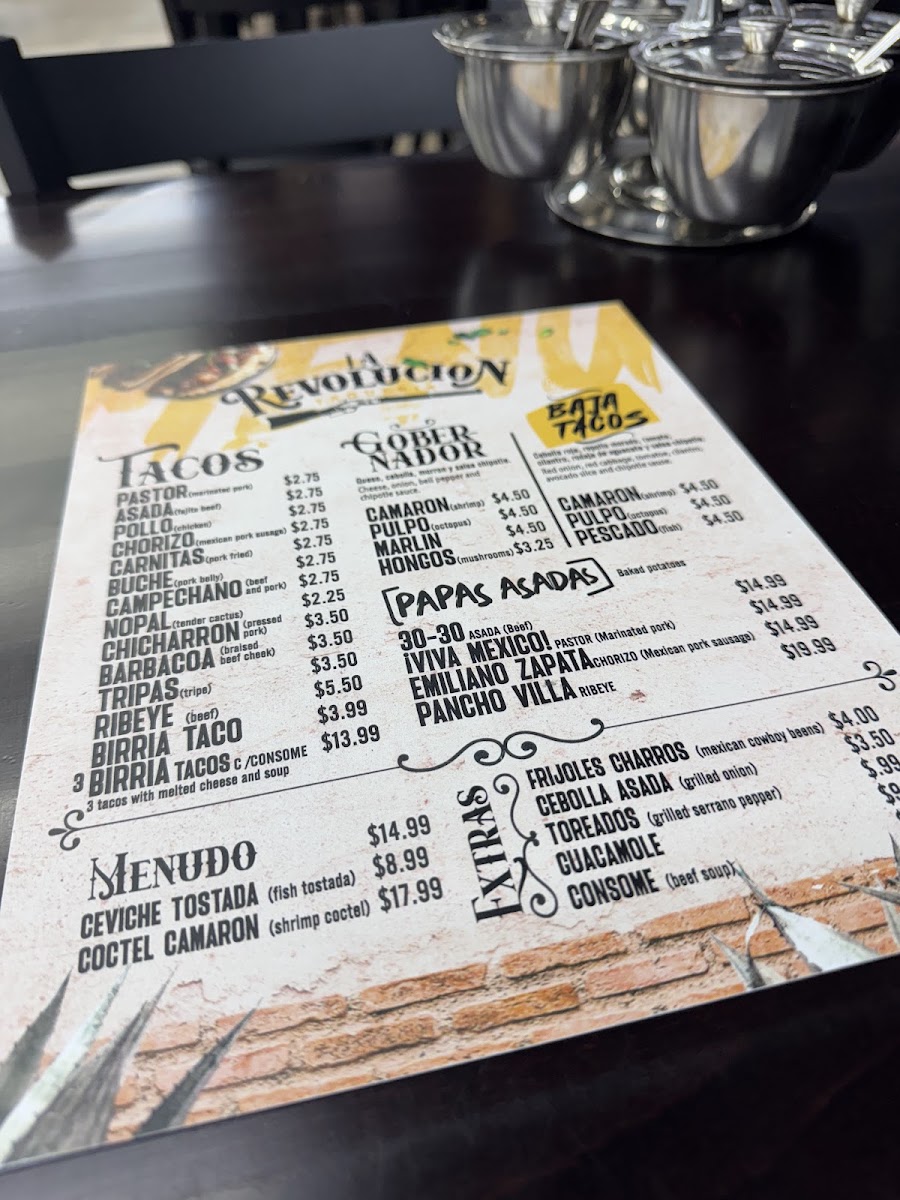 LA
REVOLUCION
TACOS
PASTOR (marinated pork) $2.75
ASADA (fajita beef) $2.75
POLLO (chicken) $2.75
CHORIZO (mexican pork susage) $2.75
CARNITAS (pork fried) $2.75
BUCHE (pork belly) $2.75
CAMPECHANO (beef and pork) $2.75
NOPAL (tender cactus) $2.25
CHICHARRON (pressed pork) $3.50
BARBACOA (braised beef cheek) $3.50
TRIPAS (tripe) $3.50
RIBEYE (beef) $5.50
BIRRIA TACO $3.99
3 BIRRIA TACOS C/CONSOME $13.99
3 tacos with melted cheese and soup
GOBER-
NADOR
Queso, cebolla, morron y salsa chipotle.
Cheese, onion, bell pepper and
chipotle sauce.
CAMARON (shrimp) $4.50
PULPO (octopus) $4.50
MARLIN $4.50
HONGOS (mushrooms) $3.25
BAJA
TACOS
Cebolla roja, repollo morado, tomate,
cilantro, rodaja de aguacate y salsa chipotle
Red onion, red cabbage, tomatoe, cilantro,
avocado slice and chipotle sauce.
CAMARON (shrimp) $4.50
PULPO (octopus) $4.50
PESCADO (fish) $4.50
PAPAS ASADAS Baked potatoes
30-30 ASADA (Beef) $14.99
¡VIVA MEXICO! PASTOR (Marinated pork) $14.99
EMILIANO ZAPATA CHORIZO (Mexican pork sausage) $14.99
PANCHO VILLA RIBEYE $19.99
MENUDO $14.99
CEVICHE TOSTADA (fish tostada) $8.99
COCTEL CAMARON (shrimp coctel) $17.99
EXTRAS
FRIJOLES CHARROS (mexican cowboy beens) $4.00
CEBOLLA ASADA (grilled onion) $3.50
TOREADOS (grilled serrano pepper) $.99
GUACAMOLE
CONSOME (beef soup)